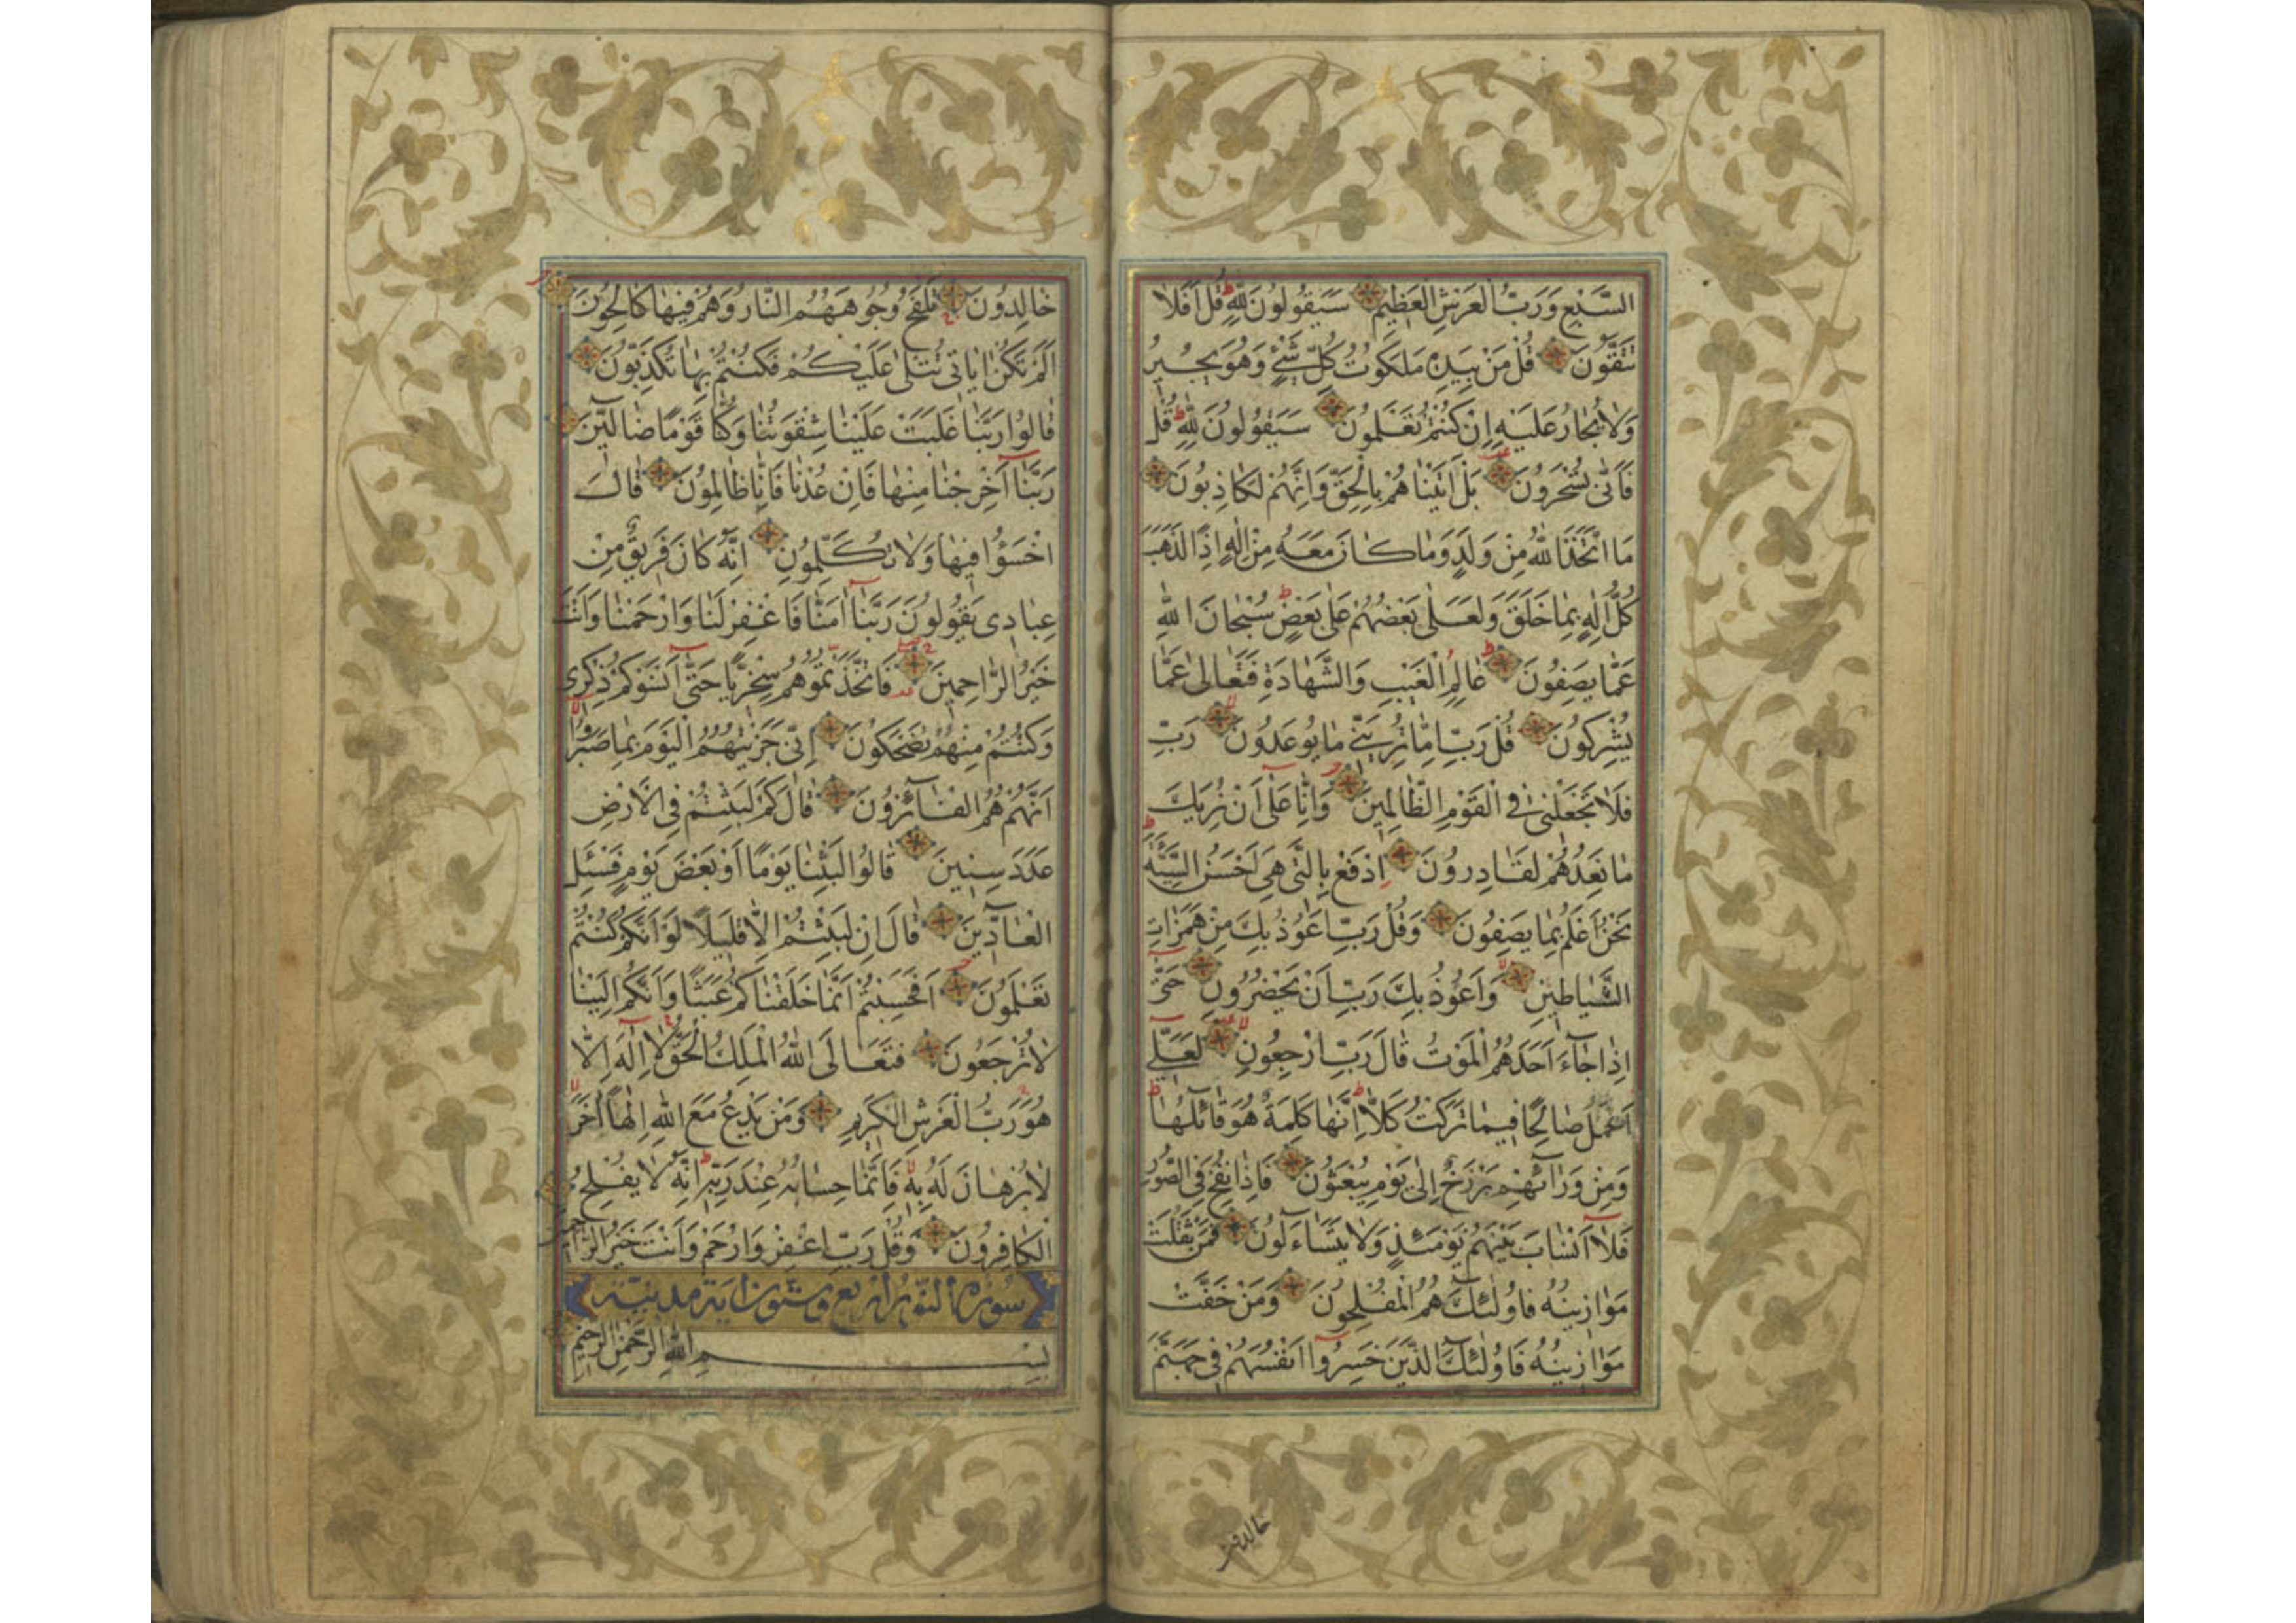 السَّبْعِ وَرَبُّ الْعَرْشِ الْعَظِيمِ سَيَقُولُونَ لِلّٰهِ قُلْ اَفَلَا
تَتَّقُونَ قُلْ مَنْ بِيَدِهِ مَلَكُوتُ كُلِّ شَيْءٍ وَهُوَ يُجِيرُ
وَلَا يُجَارُ عَلَيْهِ اِنْ كُنْتُمْ تَعْلَمُونَ سَيَقُولُونَ لِلّٰهِ قُلْ
فَاَنّٰى تُسْحَرُونَ بَلْ اَتَيْنَاهُمْ بِالْحَقِّ وَاِنَّهُمْ لَكَاذِبُونَ
مَا اتَّخَذَ اللّٰهُ مِنْ وَلَدٍ وَمَا كَانَ مَعَهُ مِنْ اِلٰهٍ اِذًا لَذَهَبَ
كُلُّ اِلٰهٍ بِمَا خَلَقَ وَلَعَلٰى بَعْضُهُمْ عَلٰى بَعْضٍ سُبْحَانَ اللّٰهِ
عَمَّا يَصِفُونَ عَالِمِ الْغَيْبِ وَالشَّهَادَةِ فَتَعَالٰى عَمَّا
يُشْرِكُونَ قُلْ رَبِّ اِمَّا تُرِيَنِّي مَا يُوعَدُونَ رَبِّ
فَلَا تَجْعَلْنِي فِي الْقَوْمِ الظَّالِمِينَ وَاِنَّا عَلٰى اَنْ نُرِيَكَ
مَا نَعِدُهُمْ لَقَادِرُونَ اِدْفَعْ بِالَّتِي هِيَ اَحْسَنُ السَّيِّئَةَ
نَحْنُ اَعْلَمُ بِمَا يَصِفُونَ وَقُلْ رَبِّ اَعُوذُ بِكَ مِنْ هَمَزَاتِ
الشَّيَاطِينِ وَاَعُوذُ بِكَ رَبِّ اَنْ يَحْضُرُونِ حَتّٰى
اِذَا جَاءَ اَحَدَهُمُ الْمَوْتُ قَالَ رَبِّ ارْجِعُونِ لَعَلِّي
اَعْمَلُ صَالِحًا فِيمَا تَرَكْتُ كَلَّا اِنَّهَا كَلِمَةٌ هُوَ قَائِلُهَا
وَمِنْ وَرَائِهِمْ بَرْزَخٌ اِلٰى يَوْمِ يُبْعَثُونَ فَاِذَا نُفِخَ فِي الصُّورِ
فَلَا اَنْسَابَ بَيْنَهُمْ يَوْمَئِذٍ وَلَا يَتَسَاءَلُونَ فَمَنْ ثَقُلَتْ
مَوَازِينُهُ فَاُولٰئِكَ هُمُ الْمُفْلِحُونَ وَمَنْ خَفَّتْ
مَوَازِينُهُ فَاُولٰئِكَ الَّذِينَ خَسِرُوا اَنْفُسَهُمْ فِي جَهَنَّمَ
خالدون
خَالِدُونَ تَلْفَحُ وُجُوهَهُمُ النَّارُ وَهُمْ فِيهَا كَالِحُونَ
اَلَمْ تَكُنْ اٰيَاتِي تُتْلٰى عَلَيْكُمْ فَكُنْتُمْ بِهَا تُكَذِّبُونَ
قَالُوا رَبَّنَا غَلَبَتْ عَلَيْنَا شِقْوَتُنَا وَكُنَّا قَوْمًا ضَالِّينَ
رَبَّنَا اَخْرِجْنَا مِنْهَا فَاِنْ عُدْنَا فَاِنَّا ظَالِمُونَ قَالَ
اخْسَؤُا فِيهَا وَلَا تُكَلِّمُونِ اِنَّهُ كَانَ فَرِيقٌ مِنْ
عِبَادِي يَقُولُونَ رَبَّنَا اٰمَنَّا فَاغْفِرْ لَنَا وَارْحَمْنَا وَاَنْتَ
خَيْرُ الرَّاحِمِينَ فَاتَّخَذْتُمُوهُمْ سِخْرِيًّا حَتّٰى اَنْسَوْكُمْ ذِكْرِي
وَكُنْتُمْ مِنْهُمْ تَضْحَكُونَ اِنِّي جَزَيْتُهُمُ الْيَوْمَ بِمَا صَبَرُوا
اَنَّهُمْ هُمُ الْفَائِزُونَ قَالَ كَمْ لَبِثْتُمْ فِي الْاَرْضِ
عَدَدَ سِنِينَ قَالُوا لَبِثْنَا يَوْمًا اَوْ بَعْضَ يَوْمٍ فَسْئَلِ
الْعَادِّينَ قَالَ اِنْ لَبِثْتُمْ اِلَّا قَلِيلًا لَوْ اَنَّكُمْ كُنْتُمْ
تَعْلَمُونَ اَفَحَسِبْتُمْ اَنَّمَا خَلَقْنَاكُمْ عَبَثًا وَاَنَّكُمْ اِلَيْنَا
لَا تُرْجَعُونَ فَتَعَالَى اللّٰهُ الْمَلِكُ الْحَقُّ لَا اِلٰهَ اِلَّا
هُوَ رَبُّ الْعَرْشِ الْكَرِيمِ وَمَنْ يَدْعُ مَعَ اللّٰهِ اِلٰهًا اٰخَرَ
لَا بُرْهَانَ لَهُ بِهِ فَاِنَّمَا حِسَابُهُ عِنْدَ رَبِّهِ اِنَّهُ لَا يُفْلِحُ
الْكَافِرُونَ وَقُلْ رَبِّ اغْفِرْ وَارْحَمْ وَاَنْتَ خَيْرُ الرَّاحِمِينَ
سورة النور اربع وستون اية مدنية
بِسْمِ اللّٰهِ الرَّحْمٰنِ الرَّحِيمِ